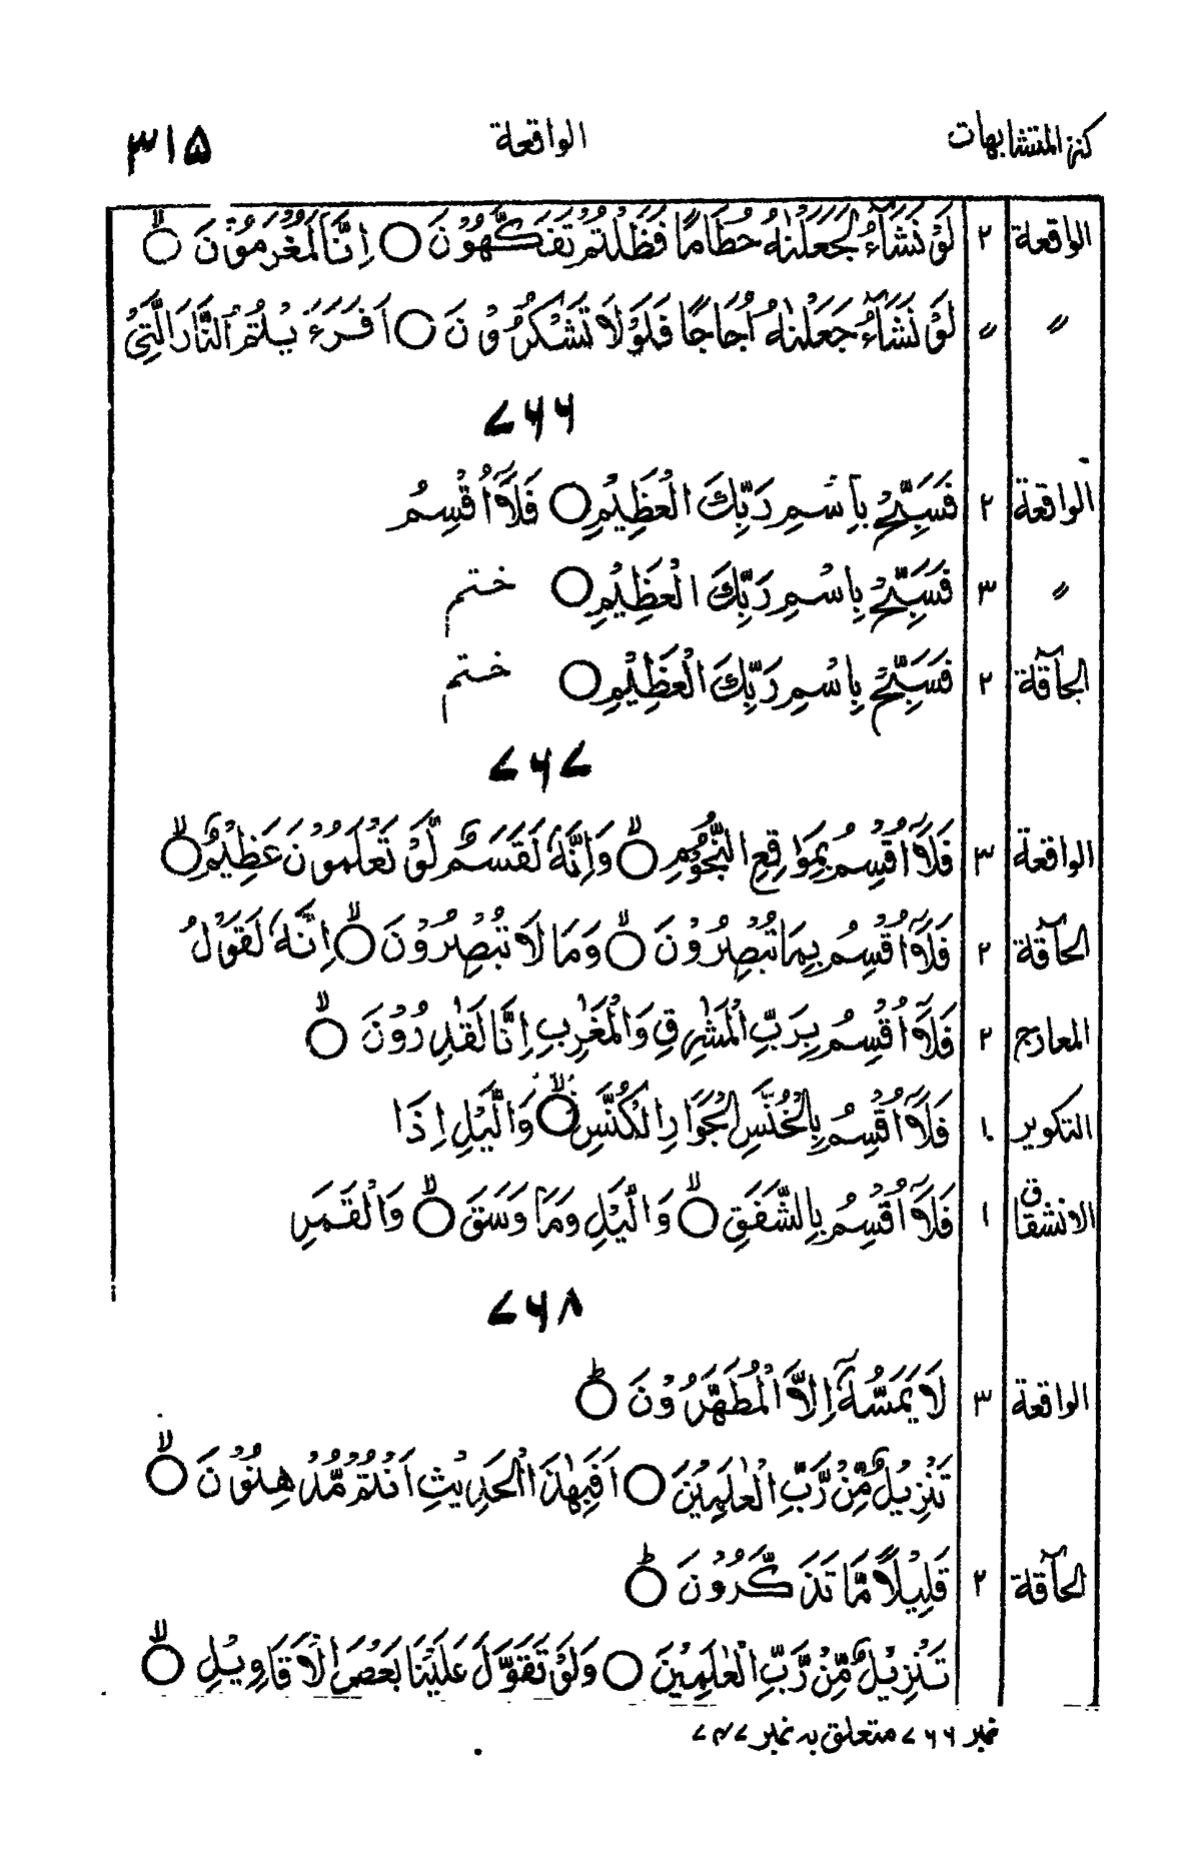 كنز المتشابهات الواقعة ٣١٥
الواقعة ٢ لَوْ نَشَآءُ لَجَعَلْنٰهُ حُطَامًا فَظَلْتُمْ تَفَكَّهُوْنَ ○ اِنَّا لَمُغْرَمُوْنَ ○ۙ
〃 〃 لَوْ نَشَآءُ جَعَلْنٰهُ اُجَاجًا فَلَوْلَا تَشْكُرُوْنَ ○ اَفَرَءَيْتُمُ النَّارَ الَّتِىْ
۷۶۶
الواقعة ٢ فَسَبِّحْ بِاسْمِ رَبِّكَ الْعَظِيْمِ ○ فَلَآ اُقْسِمُ
〃 ٣ فَسَبِّحْ بِاسْمِ رَبِّكَ الْعَظِيْمِ ○ ختم
الحآقة ٢ فَسَبِّحْ بِاسْمِ رَبِّكَ الْعَظِيْمِ ○ ختم
۷۶۷
الواقعة ٣ فَلَآ اُقْسِمُ بِمَوٰقِعِ النُّجُوْمِ ○ۙ وَاِنَّهٗ لَقَسَمٌ لَّوْ تَعْلَمُوْنَ عَظِيْمٌ ○ۙ
الحآقة ٢ فَلَآ اُقْسِمُ بِمَا تُبْصِرُوْنَ ○ۙ وَمَا لَا تُبْصِرُوْنَ ○ۙ اِنَّهٗ لَقَوْلُ
المعارج ٢ فَلَآ اُقْسِمُ بِرَبِّ الْمَشٰرِقِ وَالْمَغٰرِبِ اِنَّا لَقٰدِرُوْنَ ○ۙ
التكوير ١ فَلَآ اُقْسِمُ بِالْخُنَّسِ الْجَوَارِ الْكُنَّسِ ○ۙ وَالَّيْلِ اِذَا
الانشقاق ١ فَلَآ اُقْسِمُ بِالشَّفَقِ ○ۙ وَالَّيْلِ وَمَا وَسَقَ ○ۙ وَالْقَمَرِ
۷۶۸
الواقعة ٣ لَا يَمَسُّهٗٓ اِلَّا الْمُطَهَّرُوْنَ ○ؕ
تَنْزِيْلٌ مِّنْ رَّبِّ الْعٰلَمِيْنَ ○ اَفَبِهٰذَا الْحَدِيْثِ اَنْتُمْ مُّدْهِنُوْنَ ○ۙ
الحآقة ٢ قَلِيْلًا مَّا تَذَكَّرُوْنَ ○ؕ
تَنْزِيْلٌ مِّنْ رَّبِّ الْعٰلَمِيْنَ ○ وَلَوْ تَقَوَّلَ عَلَيْنَا بَعْضَ الْاَقَاوِيْلِ ○ۙ
نمبر ۷۶۶ متعلق به نمبر ۷۴۷